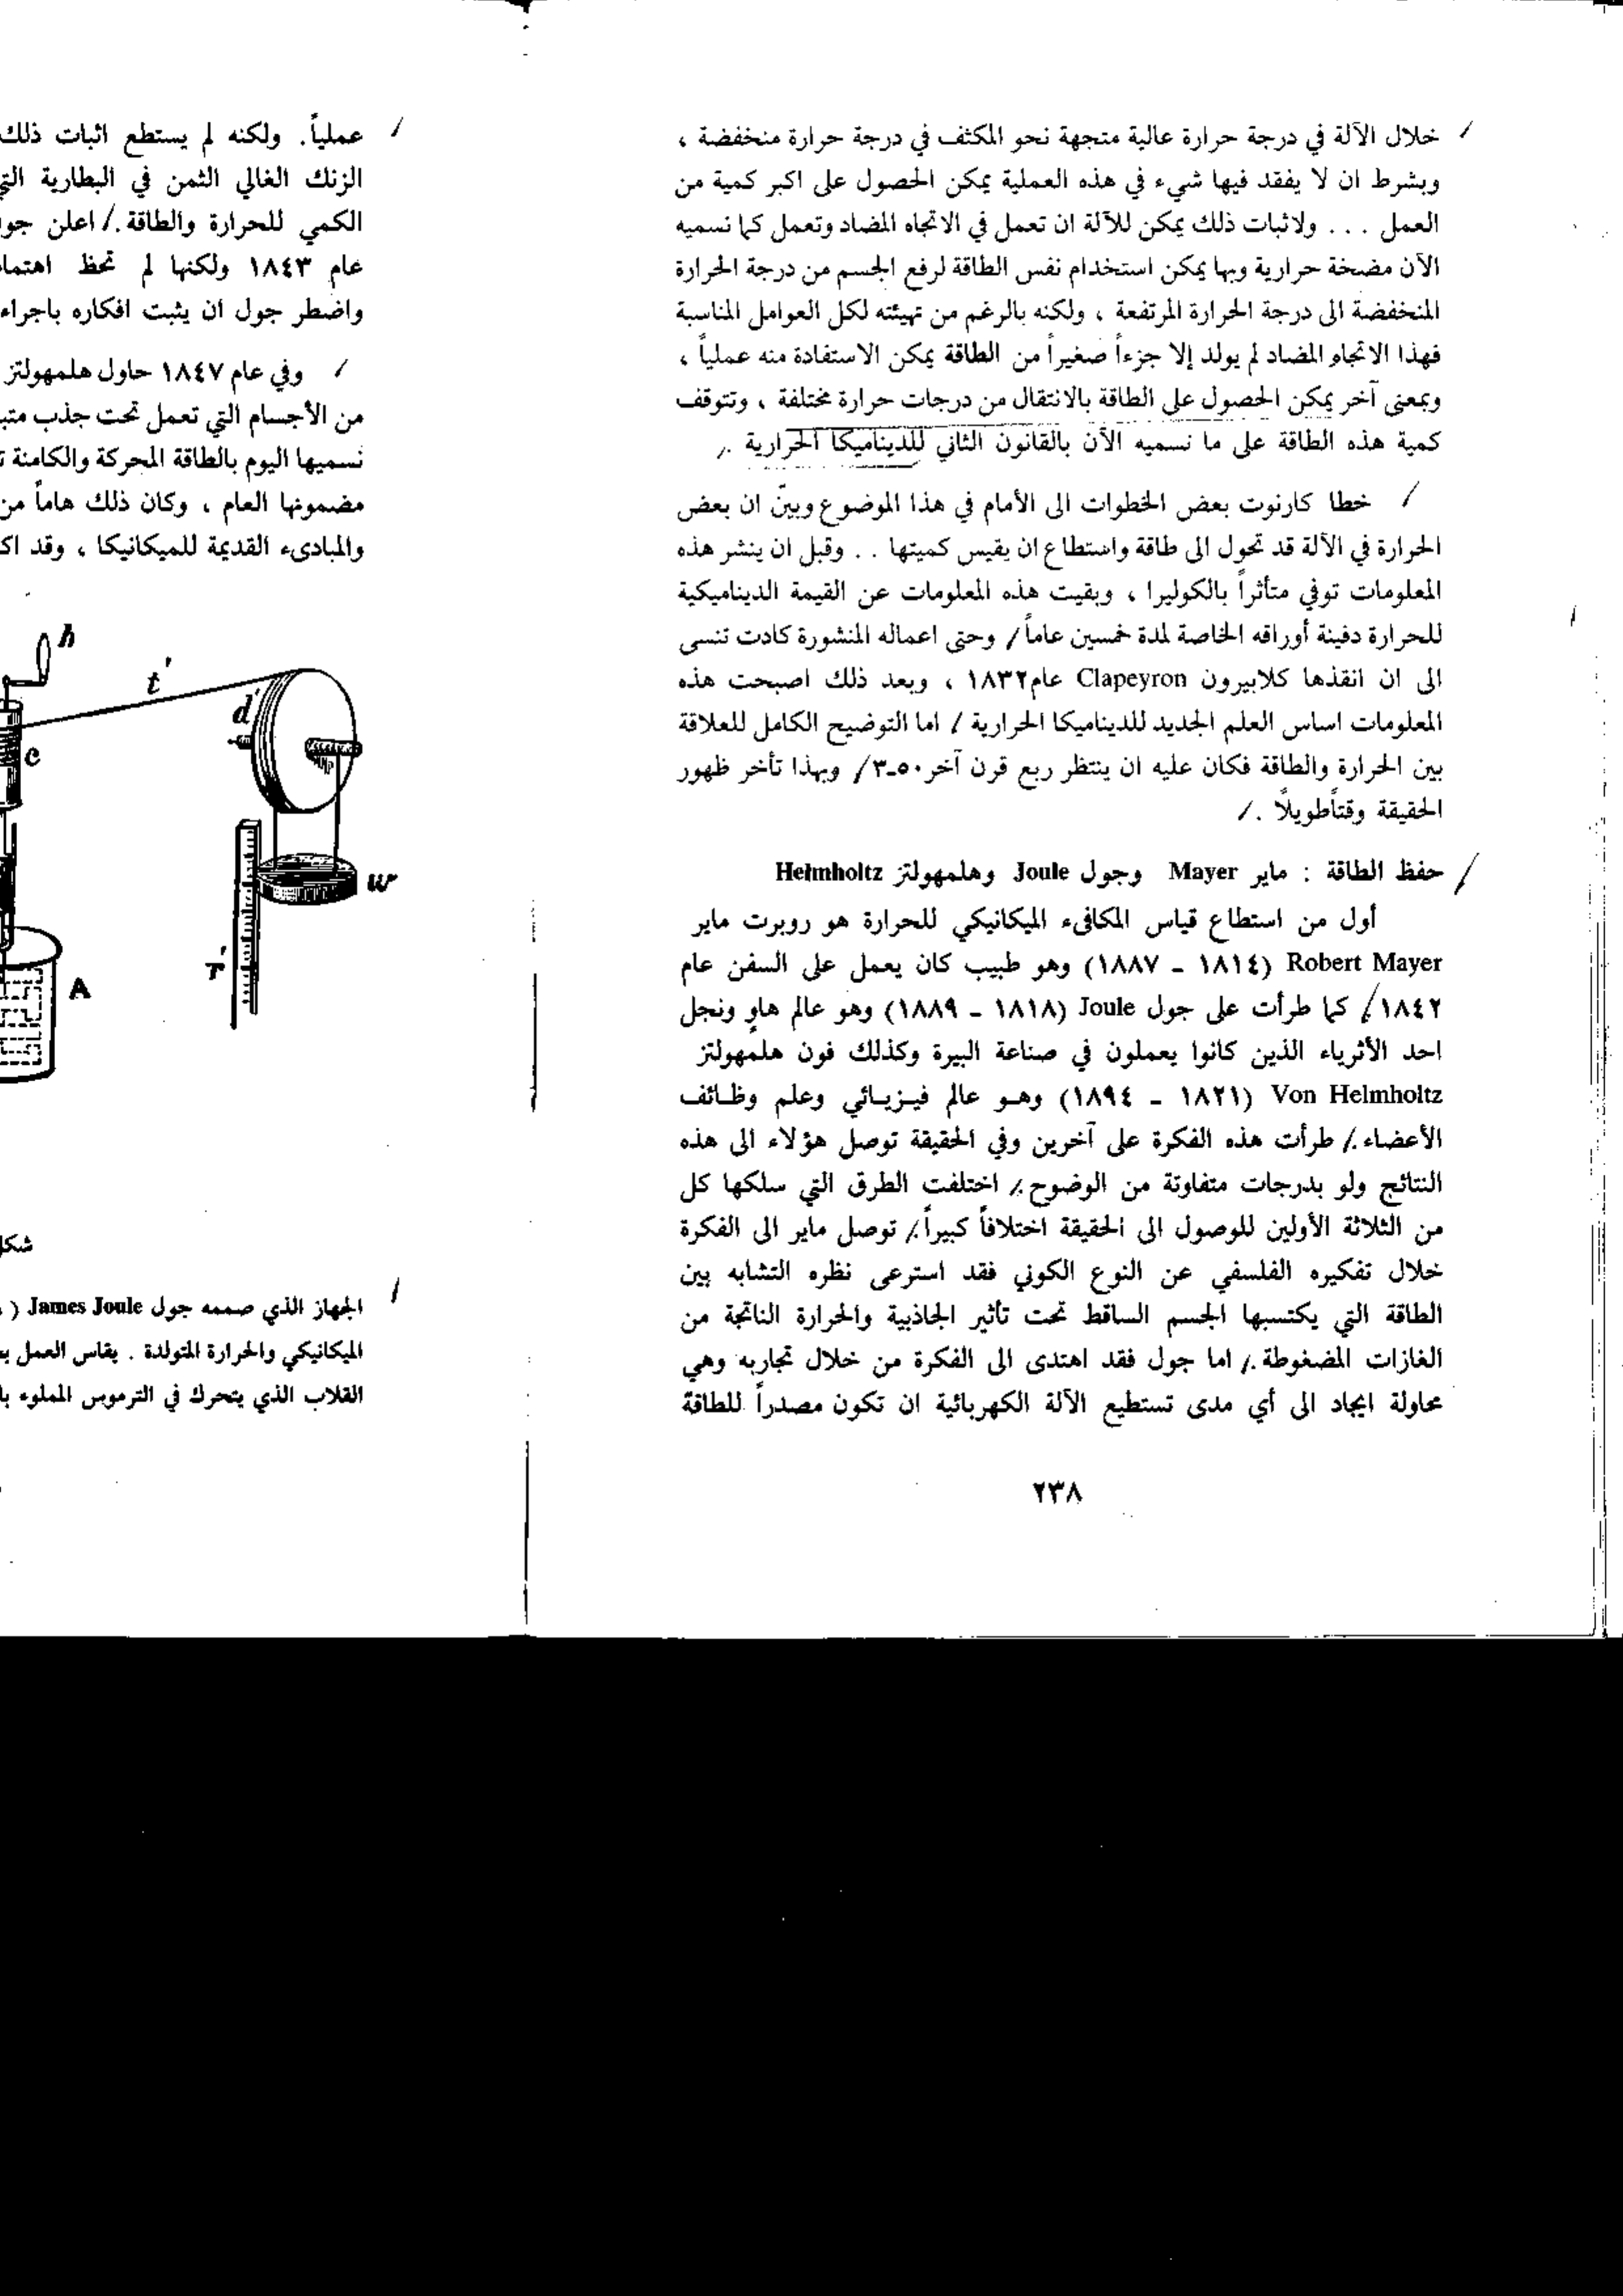 خلال الآلة في درجة حرارة عالية متجهة نحو المكثف في درجة حرارة منخفضة ،
وبشرط ان لا يفقد فيها شيء في هذه العملية يمكن الحصول على اكبر كمية من
العمل . . . ولاثبات ذلك يمكن للآلة ان تعمل في الاتجاه المضاد وتعمل كما نسميه
الآن مضخة حرارية وبها يمكن استخدام نفس الطاقة لرفع الجسم من درجة الحرارة
المنخفضة الى درجة الحرارة المرتفعة ، ولكنه بالرغم من تهيئته لكل العوامل المناسبة
فهذا الاتجاه المضاد لم يولد إلا جزءاً صغيراً من الطاقة يمكن الاستفادة منه عملياً ،
وبمعنى آخر يمكن الحصول على الطاقة بالانتقال من درجات حرارة مختلفة ، وتتوقف
كمية هذه الطاقة على ما نسميه الآن بالقانون الثاني للديناميكا الحرارية ./
/ خطا كارنوت بعض الخطوات الى الأمام في هذا الموضوع وبيّن ان بعض
الحرارة في الآلة قد تحول الى طاقة واستطاع ان يقيس كميتها . . وقبل ان ينشر هذه
المعلومات توفي متأثراً بالكوليرا ، وبقيت هذه المعلومات عن القيمة الديناميكية
للحرارة دفينة أوراقه الخاصة لمدة خمسين عاماً / وحتى اعماله المنشورة كادت تنسى
الى ان انقذها كلابيرون Clapeyron عام ١٨٣٢ ، وبعد ذلك اصبحت هذه
المعلومات اساس العلم الجديد للديناميكا الحرارية / اما التوضيح الكامل للعلاقة
بين الحرارة والطاقة فكان عليه ان ينتظر ربع قرن آخر ٥٠-٣ / وبهذا تأخر ظهور
الحقيقة وقتاً طويلاً ./
/ حفظ الطاقة : ماير Mayer وجول Joule وهلمهولتز Helmholtz
أول من استطاع قياس المكافىء الميكانيكي للحرارة هو روبرت ماير
Robert Mayer (١٨١٤ - ١٨٨٧) وهو طبيب كان يعمل على السفن عام
١٨٤٢ / كما طرأت على جول Joule (١٨١٨ - ١٨٨٩) وهو عالم هاوٍ ونجل
احد الأثرياء الذين كانوا يعملون في صناعة البيرة وكذلك فون هلمهولتز
Von Helmholtz (١٨٢١ - ١٨٩٤) وهو عالم فيزيائي وعلم وظائف
الأعضاء ./ طرأت هذه الفكرة على آخرين وفي الحقيقة توصل هؤلاء الى هذه
النتائج ولو بدرجات متفاوتة من الوضوح ./ اختلفت الطرق التي سلكها كل
من الثلاثة الأولين للوصول الى الحقيقة اختلافاً كبيراً ./ توصل ماير الى الفكرة
خلال تفكيره الفلسفي عن النوع الكوني فقد استرعى نظره التشابه بين
الطاقة التي يكتسبها الجسم الساقط تحت تأثير الجاذبية والحرارة الناتجة من
الغازات المضغوطة ./ اما جول فقد اهتدى الى الفكرة من خلال تجاربه وهي
محاولة ايجاد الى أي مدى تستطيع الآلة الكهربائية ان تكون مصدراً للطاقة
٢٣٨
عملياً. ولكنه لم يستطع اثبات ذلك
الزنك الغالي الثمن في البطارية
الكمي للحرارة والطاقة ./ اعلن
عام ١٨٤٣ ولكنها لم تحظ
واضطر جول ان يثبت افكاره باجراء
/ وفي عام ١٨٤٧ حاول هلمهولتز
من الأجسام التي تعمل تحت جذب
نسميها اليوم بالطاقة المحركة والكامنة
مضمونها العام ، وكان ذلك هاماً من
والمبادىء القديمة للميكانيكا ، وقد
h
t'
d'
c
w
r'
A
الجهاز الذي صممه جول James Joule (
الميكانيكي والحرارة المتولدة . يقاس العمل
القلاب الذي يتحرك في الترموس المملوء